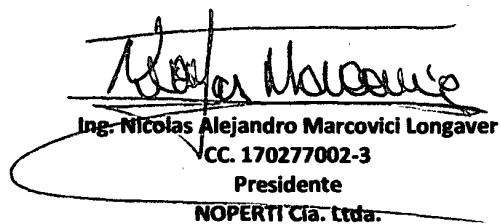 Nicolas Marcovici
Ing. Nicolas Alejandro Marcovici Longaver
CC. 170277002-3
Presidente
NOPERTI Cía. Ltda.